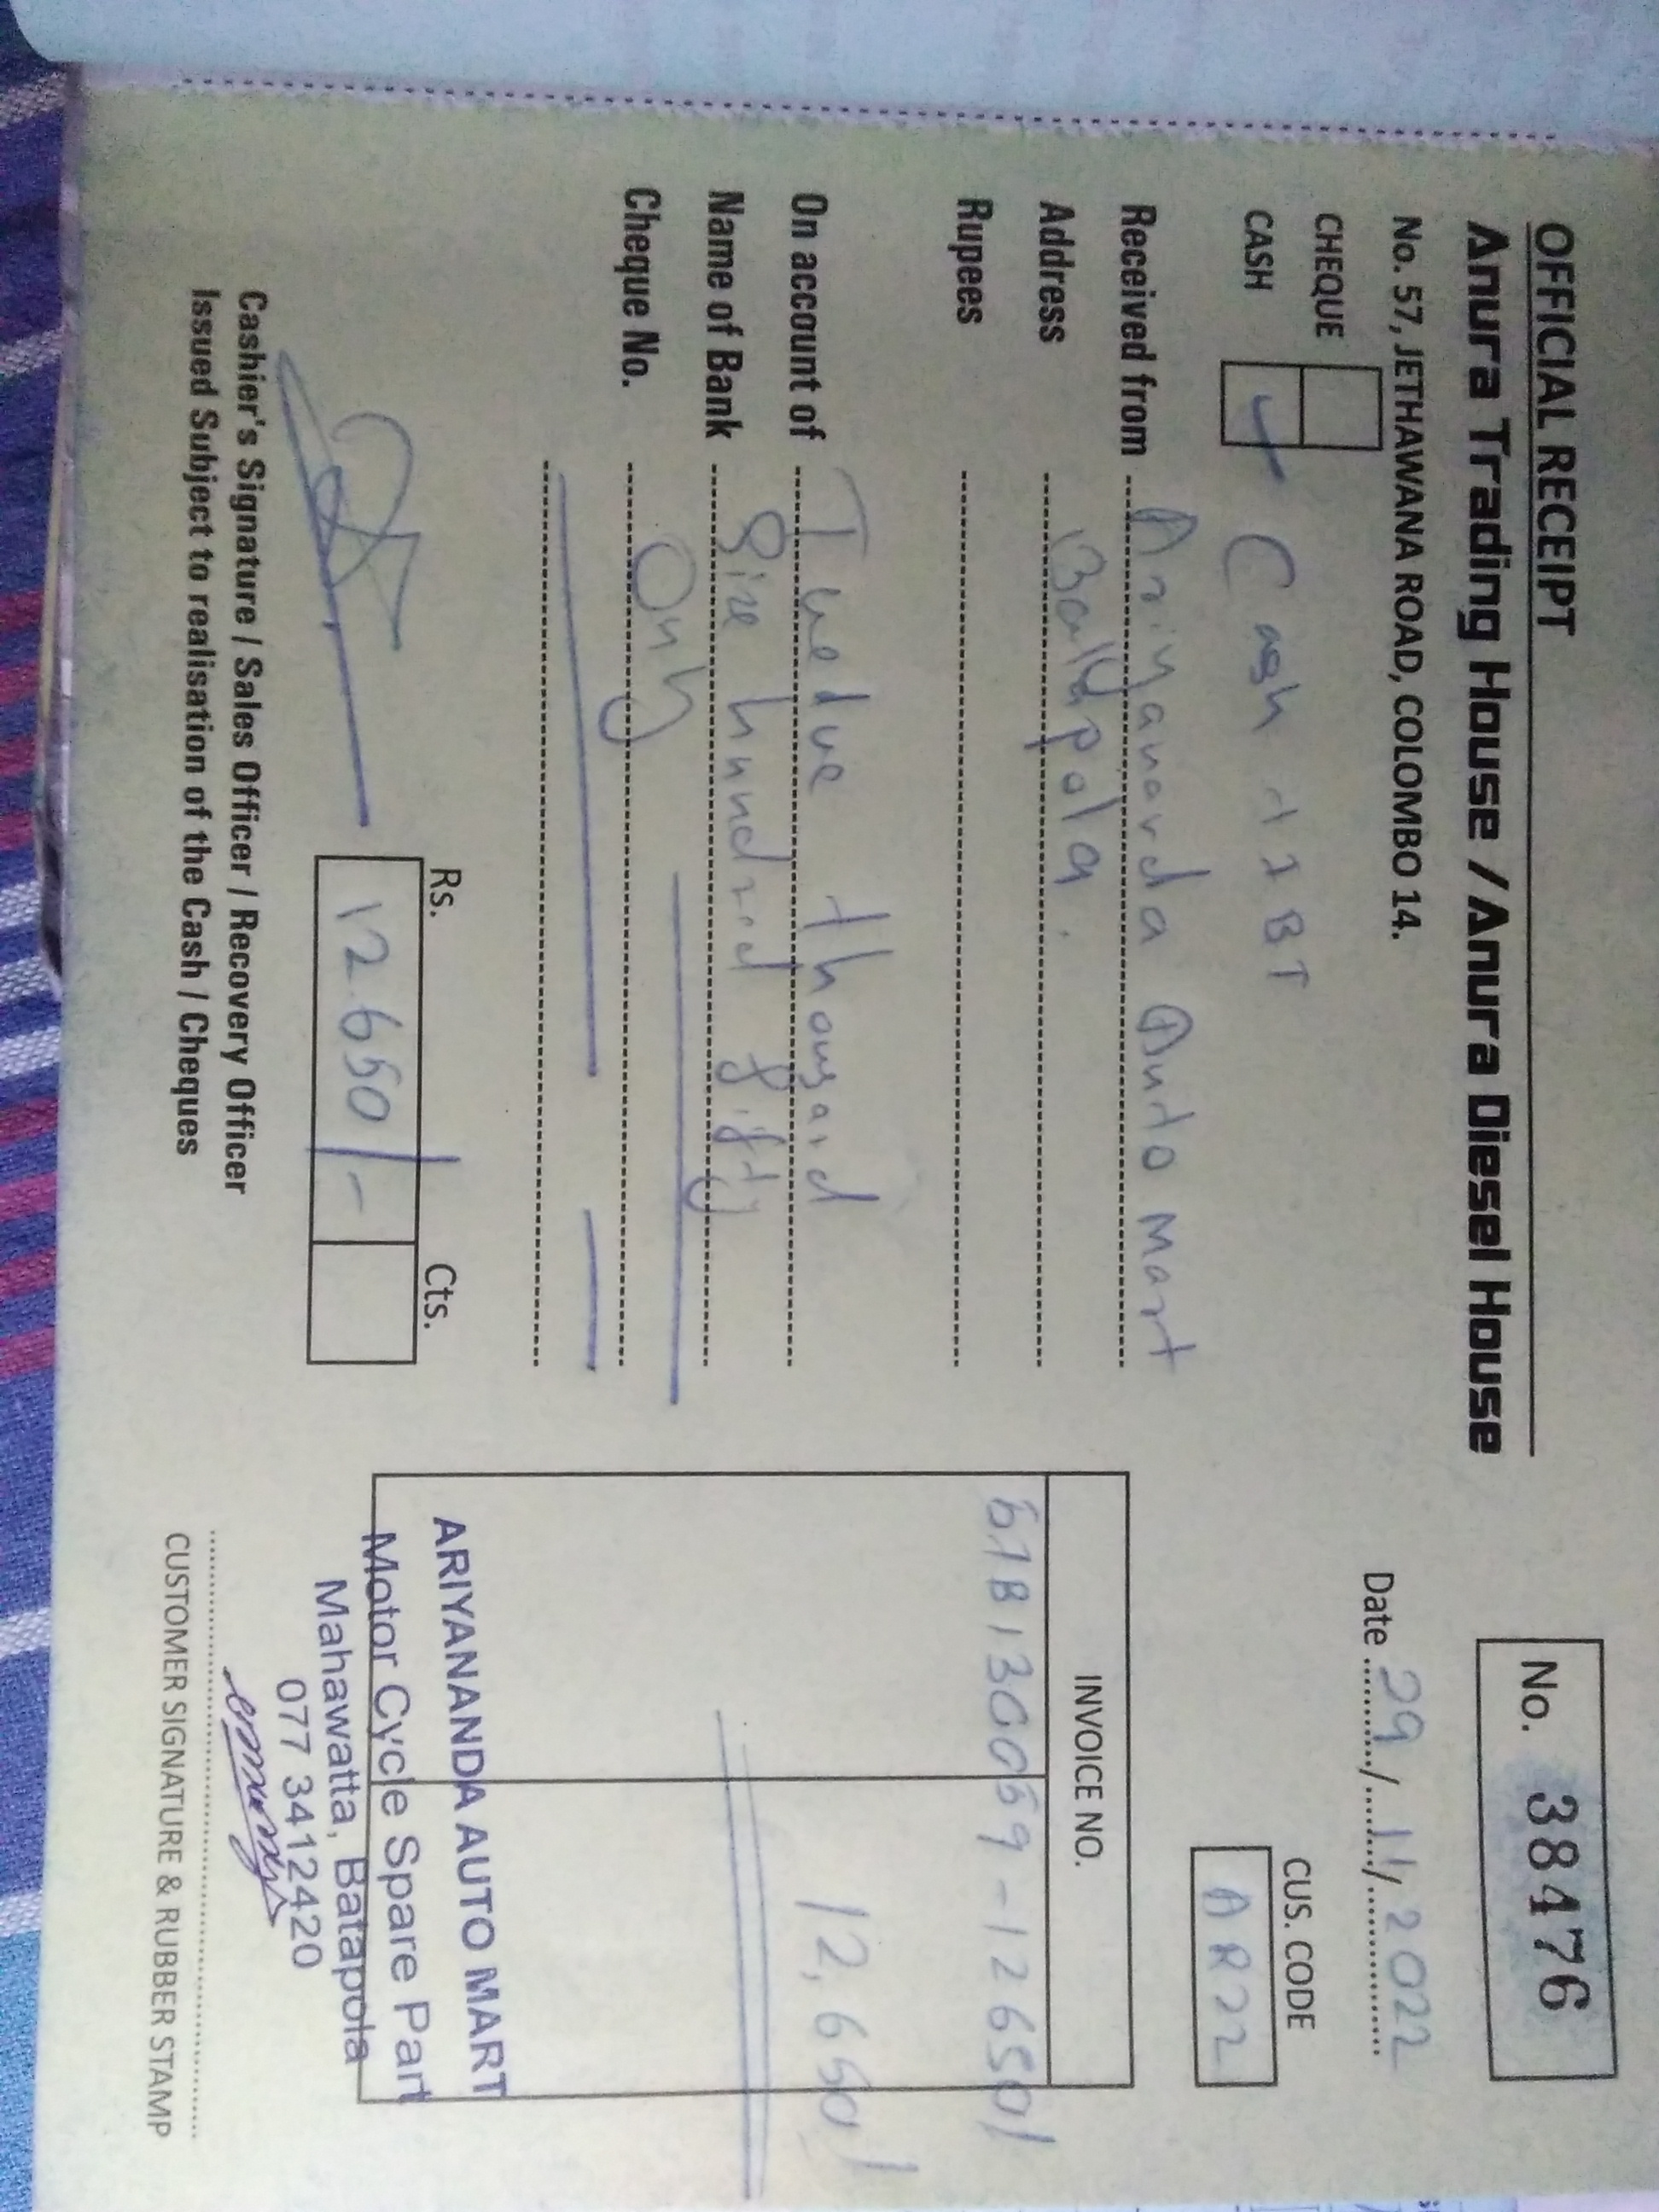 OFFICIAL RECEIPT
Anura Trading House / Anura Diesel House
No. 57, JETHAWANA ROAD, COLOMBO 14.
No. 38476
Date 29/11/2022
CHEQUE
CASH Cash
CUS. CODE
AR22
Received from Ariyananda Auto Mart
Address
Rupees
On account of Twelve thousand
Name of Bank Six hundred fifty
Cheque No. Only
INVOICE NO.
12650/
12,650/
Rs. Cts.
12650/-
Cashier's Signature / Sales Officer / Recovery Officer
Issued Subject to realisation of the Cash / Cheques
ARIYANANDA AUTO MART
Motor Cycle Spare Part
Mahawatta, Batapola
077 3412420
CUSTOMER SIGNATURE & RUBBER STAMP